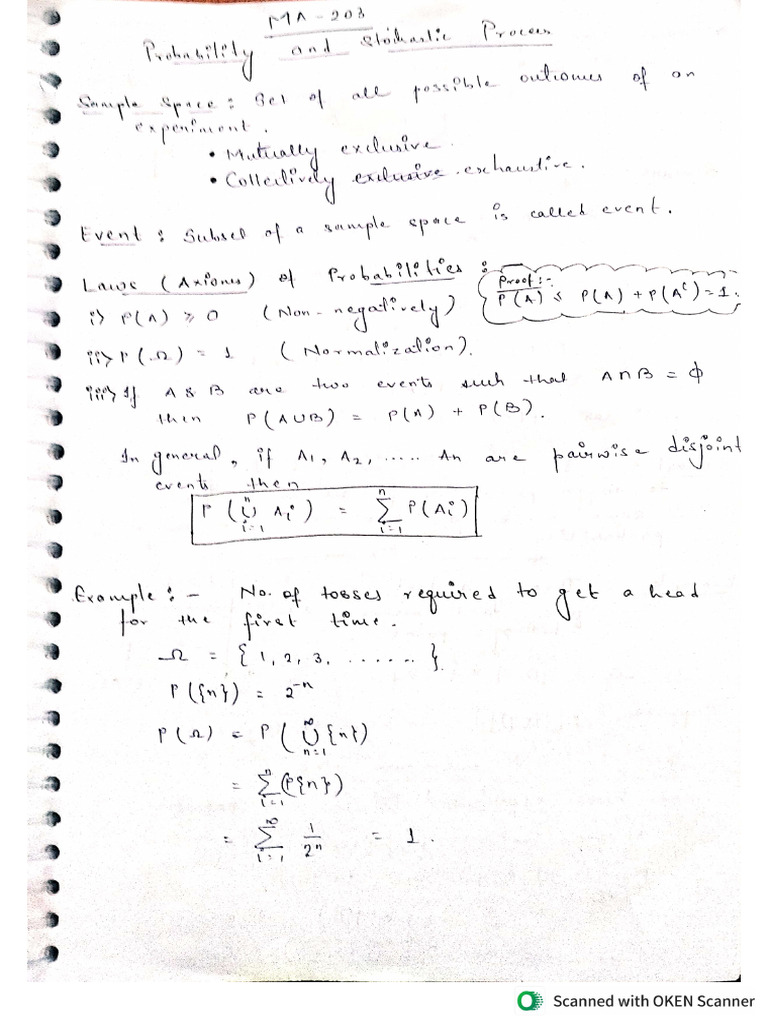 MA-203
Probability and Stochastic Process
Sample Space: Set of all possible outcomes of an
experiment.
• Mutually exclusive.
• Collectively exclusive exhaustive.
Event: Subset of a sample space is called event.
Laws (Axioms) of Probabilities:
Proof:-
P(A) ≤ P(A) + P(Aᶜ) = 1.
i> P(A) ≥ 0 (Non-negatively)
ii> P(Ω) = 1 (Normalization).
iii> If A & B are two events such that A∩B = ϕ
then P(A∪B) = P(A) + P(B).
In general, if A1, A2, ..... An are pairwise disjoint
events then
P (⋃ᵢ₌₁ⁿ Ai) = ∑ᵢ₌₁ⁿ P(Ai)
Example:- No. of tosses required to get a head
for the first time.
Ω = {1, 2, 3, .......}
P({n}) = 2⁻ⁿ
P(Ω) = P(⋃ₙ₌₁^∞ {n})
= ∑ᵢ₌₁ⁿ (P{n})
= ∑ᵢ₌₁^∞ 1/2ⁿ = 1.
Scanned with OKEN Scanner